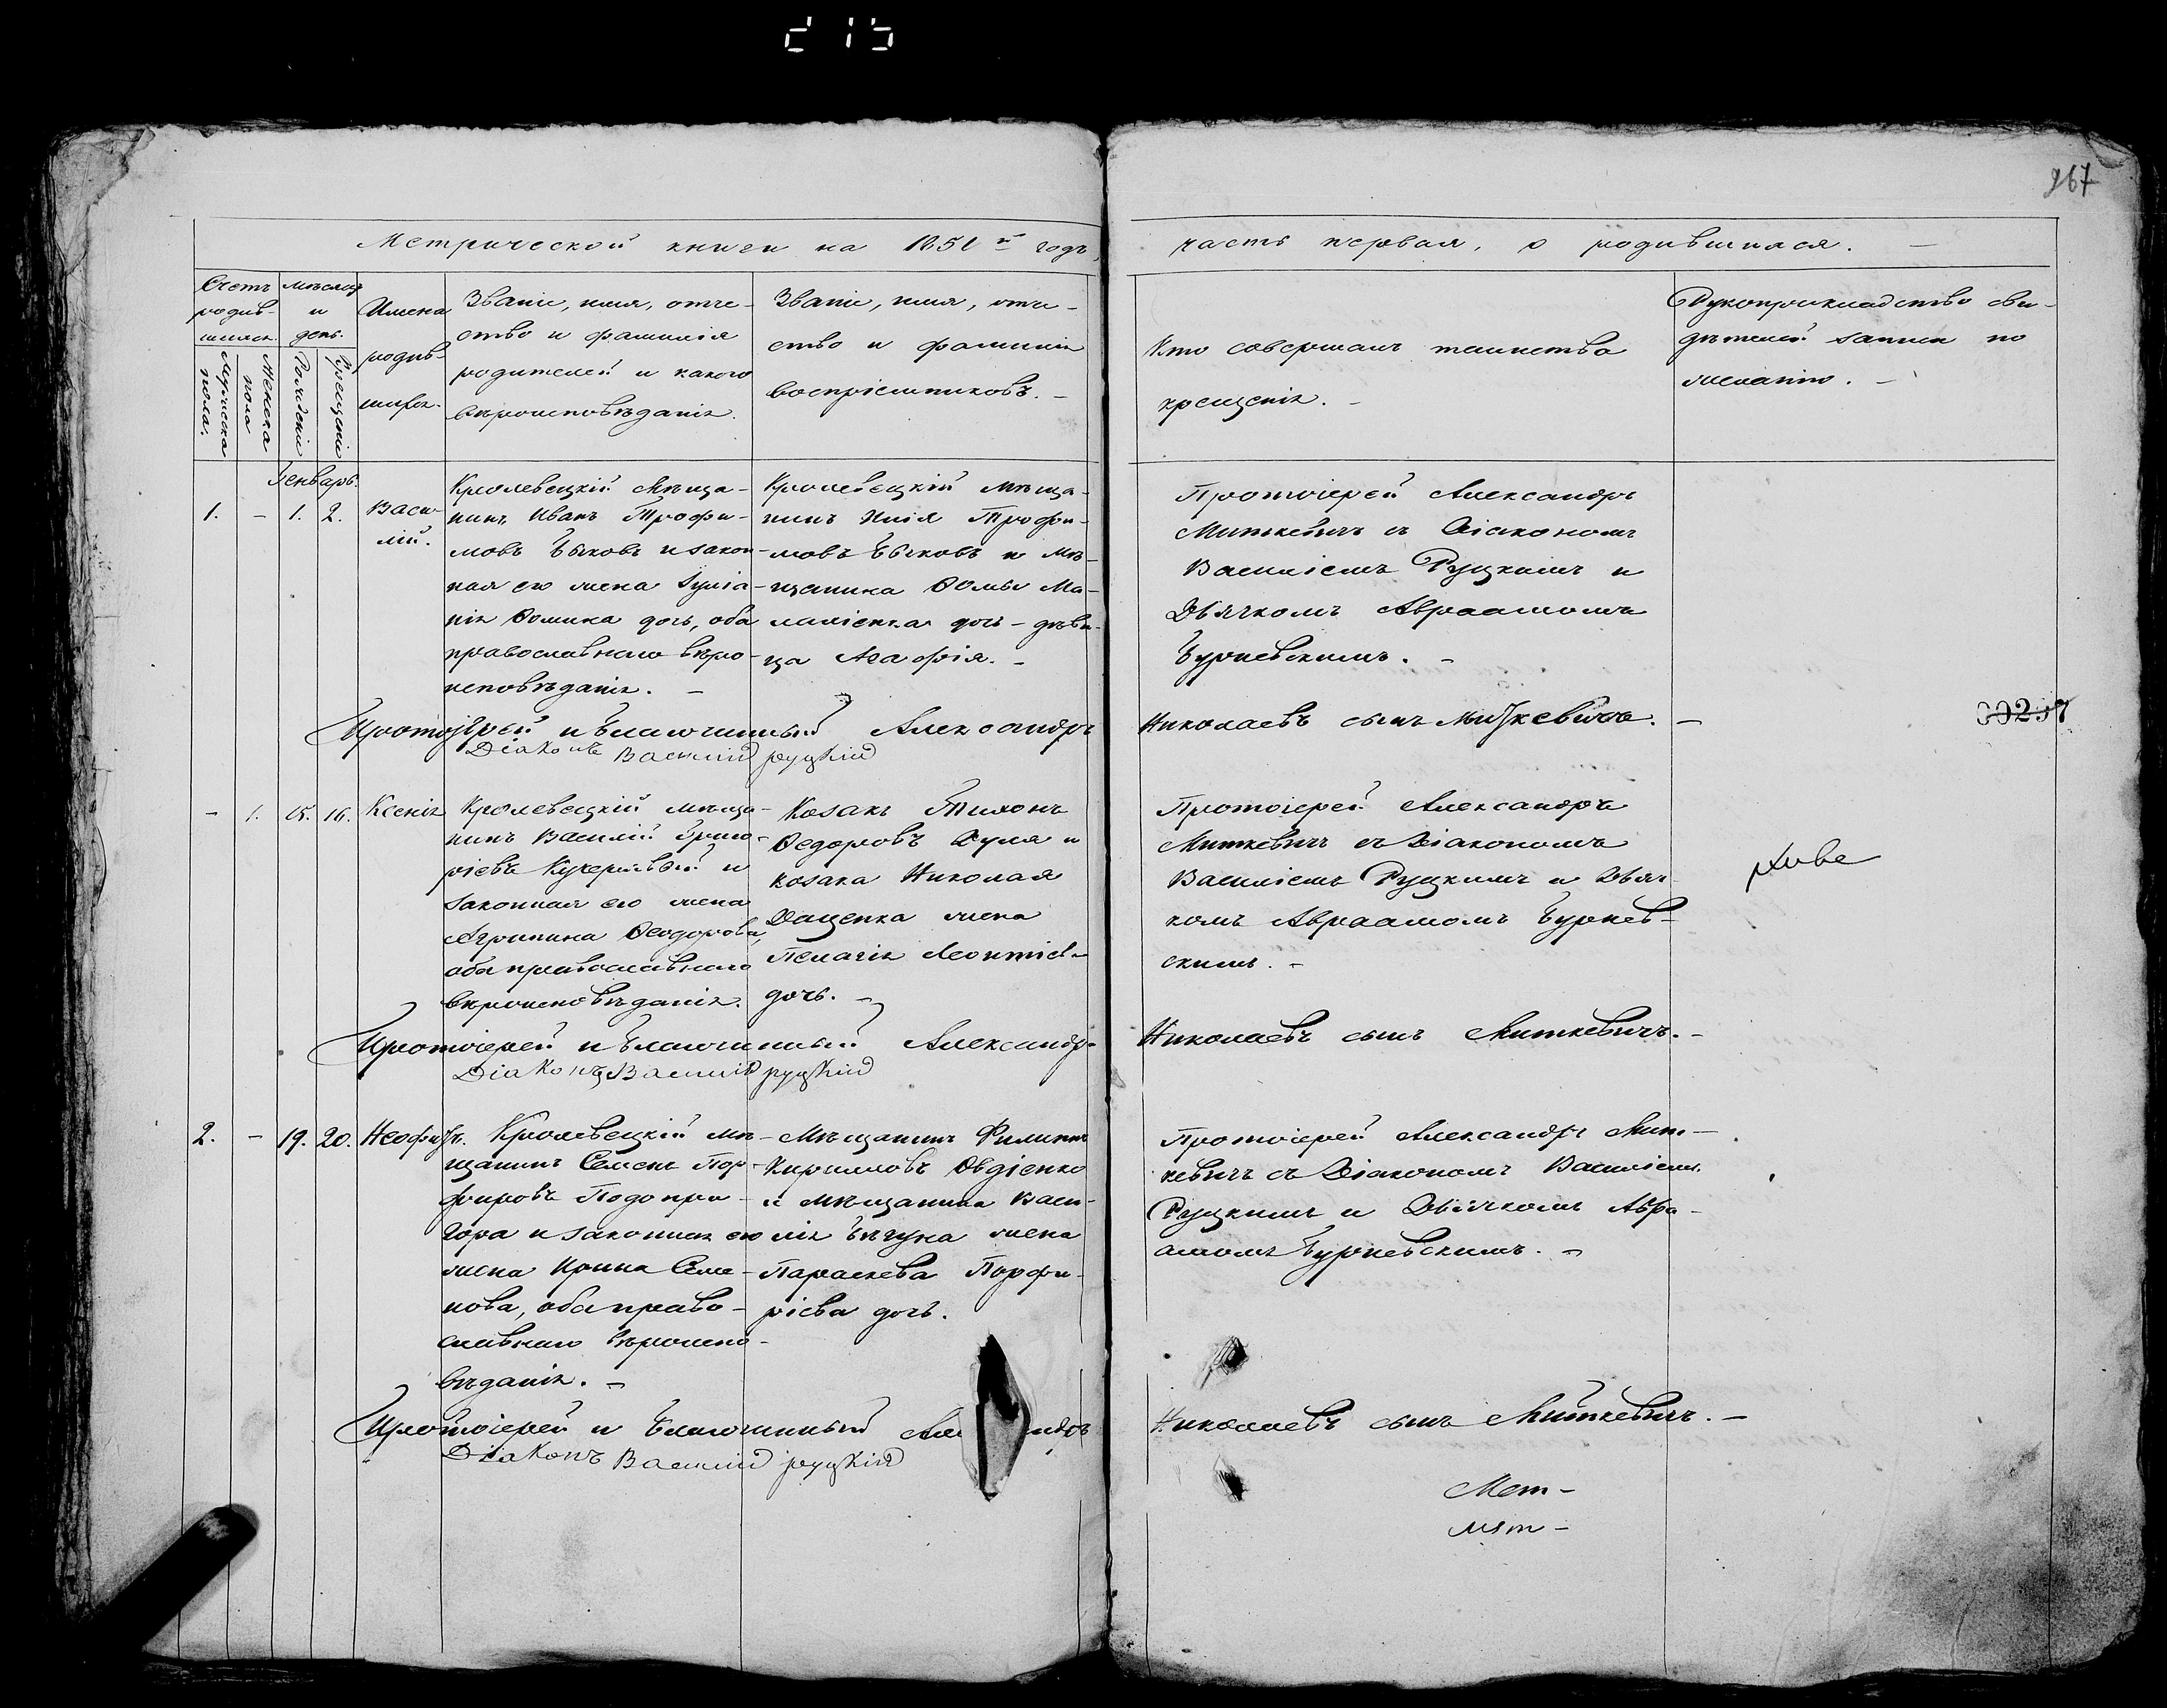 267
Метрической книги на 1851й годъ,
часть первая, о родившихся. —
Счетъ родив-шихся.
Мужеска пола.
Женска пола
мѣсяцъ и день.
Рожденія
Крещенія
Имена родив-шихся.
Званіе, имя, отче-
ство и фамилія
родителей и какого
вѣроисповѣданія.
Званіе, имя, отче-
ство и фамилія
воспріемниковъ. —
Кто совершалъ таинство
крещенія. —
Рукоприкладство сви-
дѣтелей записи по
желанію. —
Генварь.
1. – 1. 2. Васи-
лій.
Кролевецкій мѣща-
нинъ Иванъ Трофи-
мовъ Быковъ и закон-
ная его жена Іуліа-
нія Ѳомина дочь, оба
православнаго вѣро-
исповѣданія. —
Кролевецкій мѣща-
нинъ Илія Трофи-
мовъ Быковъ и мѣ-
щанина Ѳомы
дочь – дѣви-
ца Агафія. –
Протоіерей Александръ
Миткевичъ съ Діакономъ
Василіемъ Руцкимъ и
Дьячкомъ Авраамомъ
Бурневскимъ. –
Протоіерей и Благочинный Александръ
Николаевъ сынъ Миткевичъ. —
Діаконъ Василій руцкій
00267
– 1. 15. 16. Ксенія
Кролевецкій мѣща-
нинъ Василій Григо-
ріевъ Кучерявый и
законная его жена
Агрипина Ѳеодорова,
оба православнаго
вѣроисповѣданія.
Козакъ Тихонъ
Ѳедоровъ Дуля и
козака Николая
Даценка жена
Пелагія Леонтіева
дочь. –
Протоіерей Александръ
Миткевичъ съ Діакономъ
Василіемъ Руцкимъ и Дьяч-
комъ Авраамомъ Бурнев-
скимъ. –
живе
Протоіерей и Благочинный Александръ
Николаевъ сынъ Миткевичъ. –
Діаконъ Василій руцкій
2. – 19. 20. Неофитъ.
Кролевецкій мѣ-
щанинъ Семенъ Пор-
фировъ Подопри-
гора и законная его
жена Ирина Семе-
нова, оба право-
славнаго вѣроиспо-
вѣданія. –
Мѣщанинъ Филиппъ
Кириловъ Овдіенко
и мѣщанина Васи-
лія Бѣгуна жена
Параскева Порфи-
ріева дочь.
Протоіерей Александръ Мит-
кевичъ съ Діакономъ Василіемъ
Руцкимъ и Дьячкомъ Авра-
амомъ Бурневскимъ. –
Протоіерей и Благочинный
Николаевъ сынъ Миткевичъ. –
Діаконъ Василій руцкій
Мет-